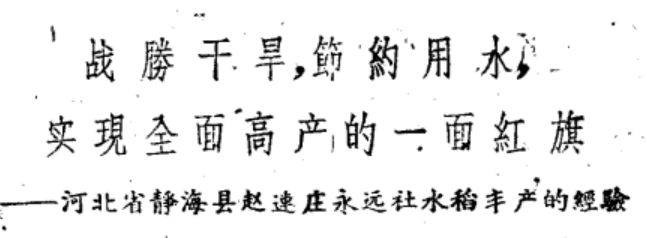 战勝干旱,節約用水,
实現全面高产的一面紅旗
——河北省靜海县赵連庄永远社水稻丰产的經驗